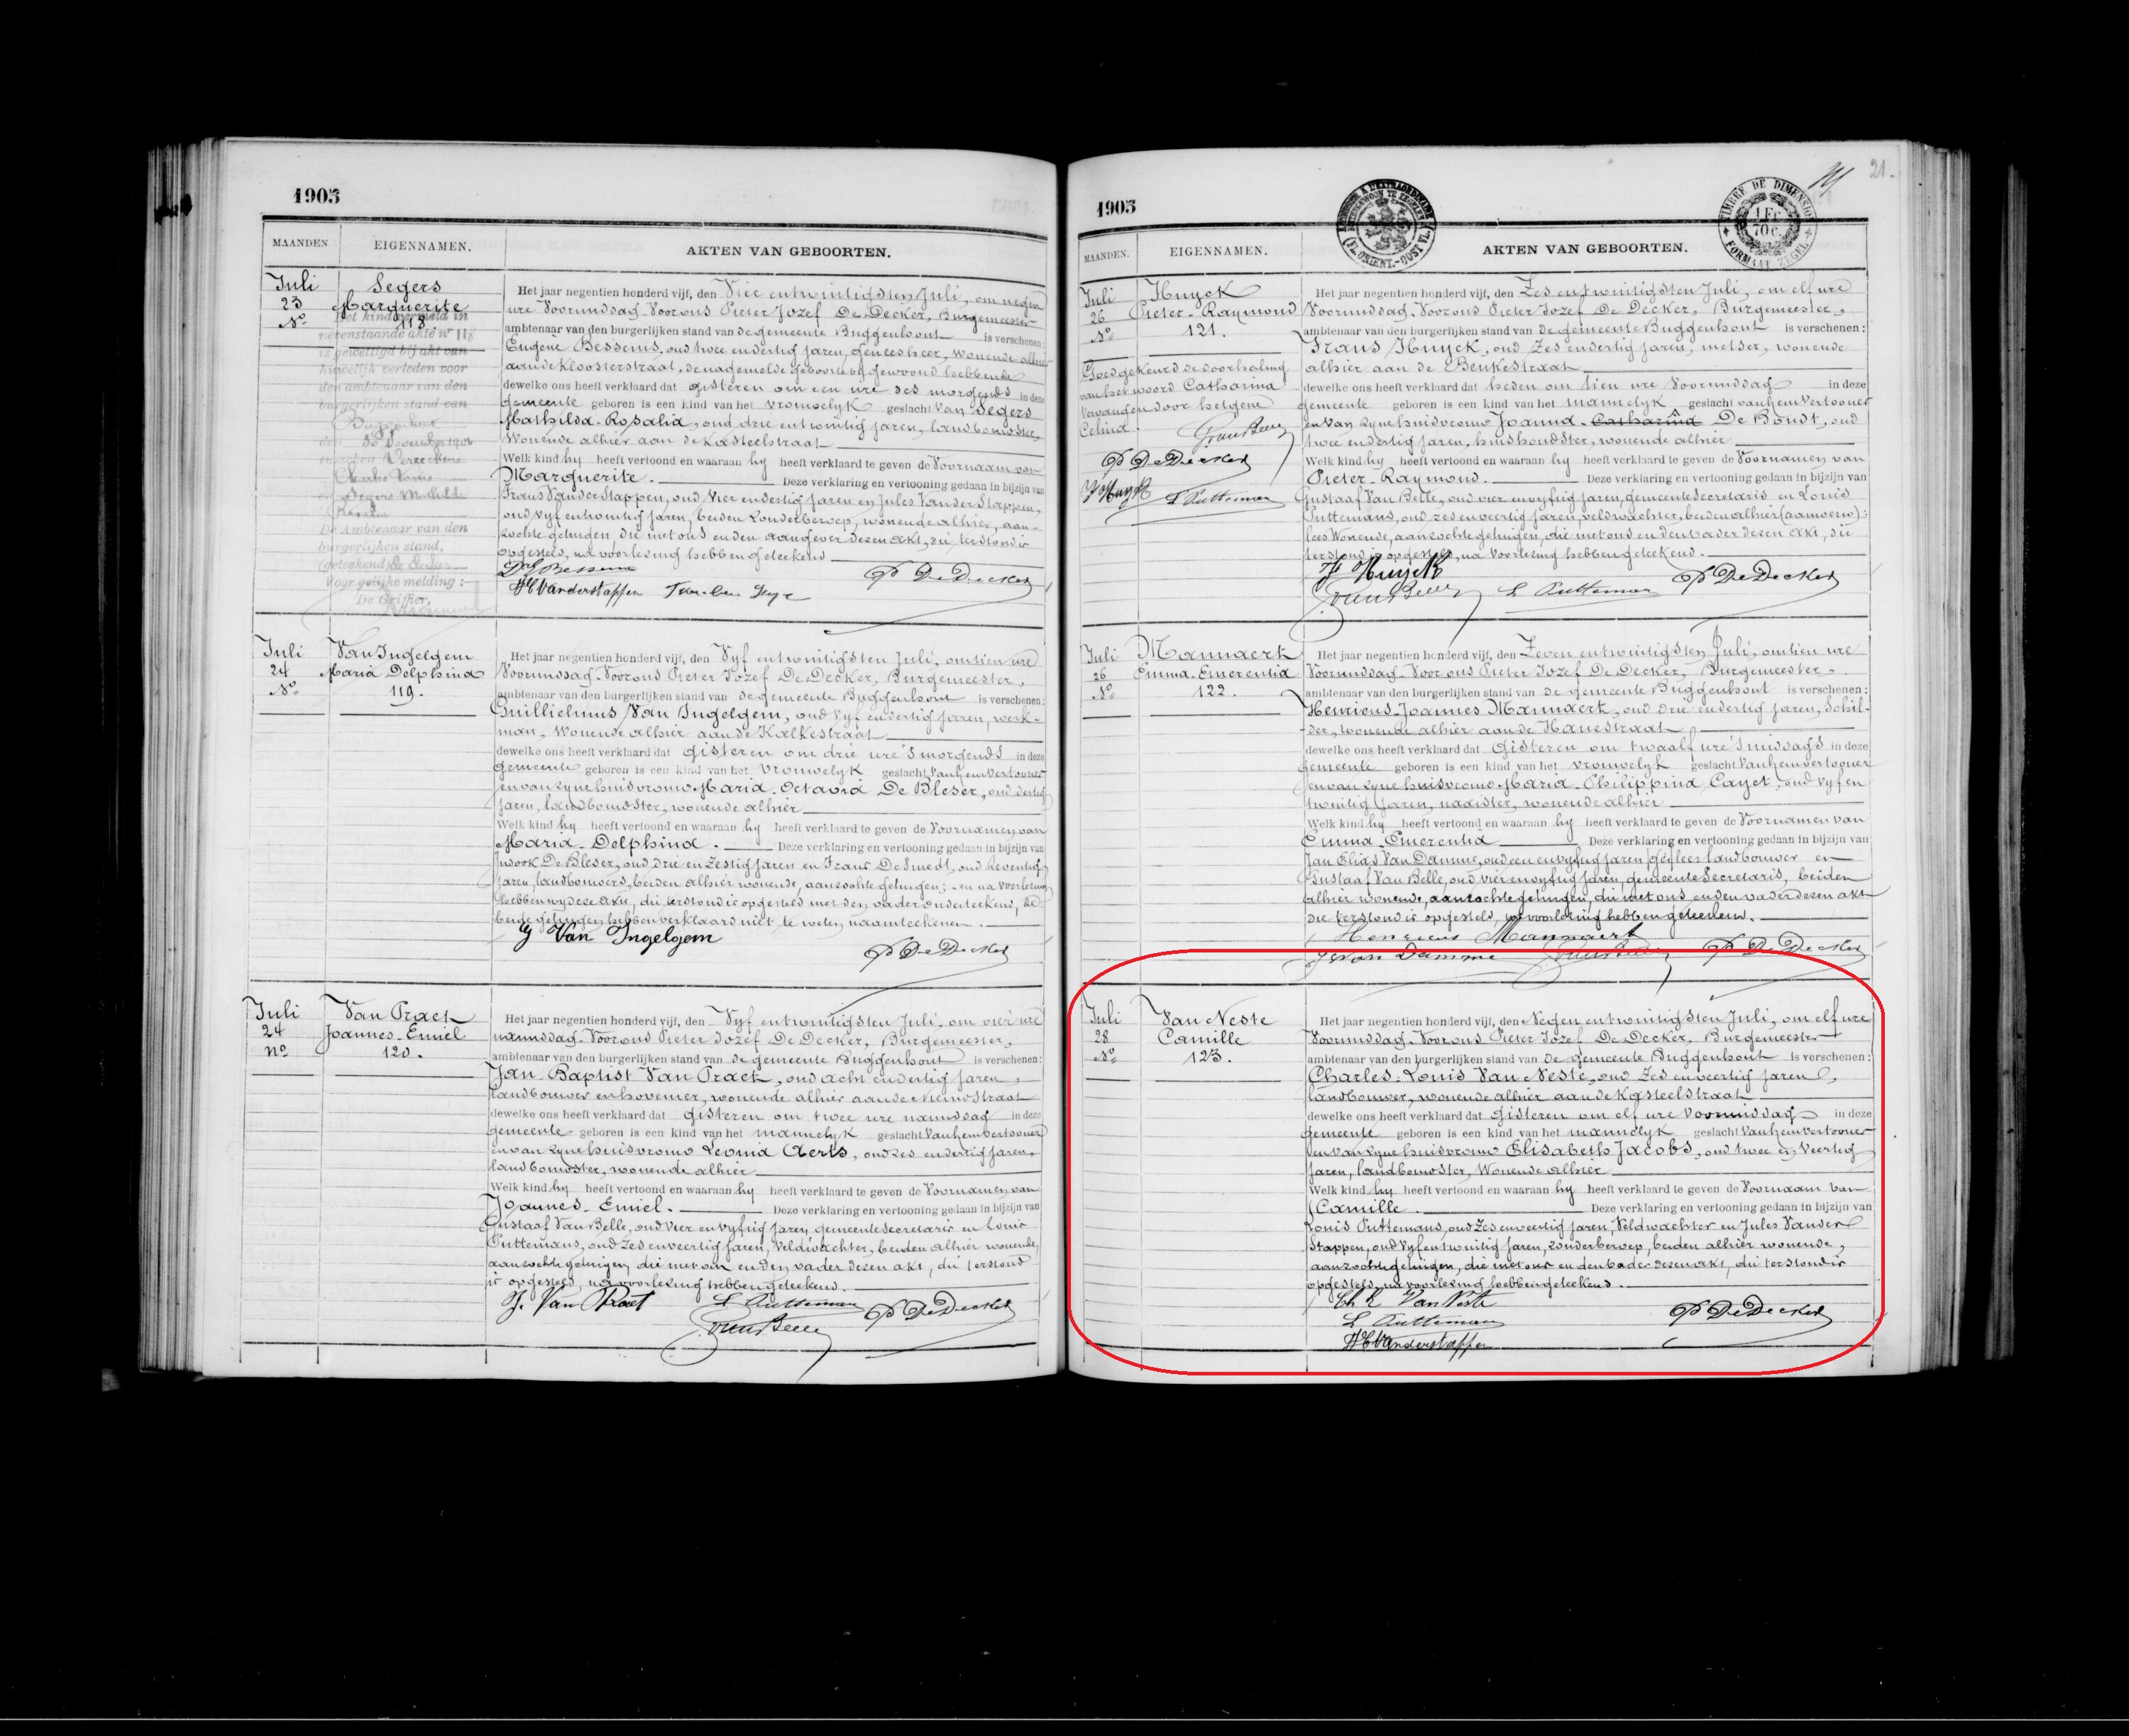 1905
MAANDEN.
EIGENNAMEN.
AKTEN VAN GEBOORTEN.
Juli
23
No
Segers
Marguerite
118.
Het kind vermeld in
nevenstaande akte No 118
is gewettigd bij akt van
huwelijk verleden voor
den ambtenaar van den
burgerlijken stand van
Buggenhout
den
tusschen Verreckens
Charles Louis
en Segers Mathilde
Rosalia
De Ambtenaar van den
burgerlijken stand,
(geteekend) De Decker
Voor gelijke melding:
De Griffier,
Het jaar negentien honderd vijf, den Vier en twintigsten Juli, om negen
ure Voormiddag, Voor ons Pieter Jozef De Decker, Burgemeester
ambtenaar van den burgerlijken stand van de gemeente Buggenhout is verschenen:
Eugene Bessems, oud twee en dertig jaren, geneesheer, wonende alhier
aan de Kloosterstraat, de nagemelde geboorte bygewoond hebbende
dewelke ons heeft verklaard dat gisteren om een ure des morgends in deze
gemeente geboren is een kind van het vrouwelyk geslacht van Segers
Mathilda-Rosalia, oud drie en twintig jaren, landbouwster,
Wonende alhier aan de Kasteelstraat
Welk kind hy heeft vertoond en waaraan hy heeft verklaard te geven de Voornaam van
Marguerite. Deze verklaring en vertooning gedaan in bijzijn van
Frans Vander Stappen, oud vier en dertig jaren en Jules Vander Stappen,
oud vyf en twintig jaren, beiden zonder beroep, wonende alhier, aan-
zochte getuigen, die met ons en den aangever dezen akt, die terstond is
opgesteld, na voorlezing hebben geteekend
Dr E Bessems
P De Decker
Vanderstappen
Juli
24
No
Van Ingelgem
Maria Delphina
119.
Het jaar negentien honderd vijf, den Vyf en twintigsten Juli, om tien ure
Voormiddag, Voor ons Pieter Jozef De Decker, Burgemeester,
ambtenaar van den burgerlijken stand van de gemeente Buggenhout is verschenen:
Guillielmus Van Ingelgem, oud vyf en dertig jaren, werk-
man, Wonende alhier aan de Kalkestraat
dewelke ons heeft verklaard dat gisteren om drie ure 's morgends in deze
gemeente geboren is een kind van het vrouwelyk geslacht van hem vertooner
en van zyne huisvrouw Maria-Octavia De Bleser, oud dertig
jaren, landbouwster, wonende alhier
Welk kind hy heeft vertoond en waaraan hy heeft verklaard te geven de Voornamen van
Maria-Delphina. Deze verklaring en vertooning gedaan in bijzijn van
De Bleser, oud drie en zestig jaren en Frans De Smedt, oud zeventig
jaren, landbouwers, beiden alhier wonende, aanzochte getuigen; en na voorlezing
hebben wy dezen akt, die terstond is opgesteld met den vader onderteekend, de
beide getuigen hebben verklaard niet te weten naamteekenen.
G Van Ingelgem
P De Decker
Juli
24
No
Van Praet
Joannes-Emiel
120.
Het jaar negentien honderd vijf, den Vyf en twintigsten Juli, om vier ure
namiddag, Voor ons Pieter Jozef De Decker, Burgemeester,
ambtenaar van den burgerlijken stand van de gemeente Buggenhout is verschenen:
Jan-Baptist Van Praet, oud acht en dertig jaren,
landbouwer en hovenier, wonende alhier aan de Nieuwstraat
dewelke ons heeft verklaard dat gisteren om twee ure namiddag in deze
gemeente geboren is een kind van het mannelyk geslacht van hem vertooner
en van zyne huisvrouw Leonia Aerts, oud zes en dertig jaren,
landbouwster, wonende alhier
Welk kind hy heeft vertoond en waaraan hy heeft verklaard te geven de Voornamen van
Joannes-Emiel. Deze verklaring en vertooning gedaan in bijzijn van
Gustaaf Van Belle, oud vier en vyftig jaren, gemeente Secretaris en Louis
Puttemans, oud zes en veertig jaren, Veldwachter, beiden alhier wonende,
aanzochte getuigen, die met ons en den vader dezen akt, die terstond
is opgesteld, na voorlezing hebben geteekend.
J. Van Praet
L Puttemans
P De Decker
Van Belle
1905
21.
TIMBRE DE DIMENSION
1 Fr.
70 c.
FORMAAT ZEGEL
MAANDEN.
EIGENNAMEN.
AKTEN VAN GEBOORTEN.
Juli
26
No
Huyck
Pieter-Raymond
121.
Goedgekeurd de doorhaling
van het woord Catharina
vervangen door hetgene
Celina.
Van Belle
P De Decker
F Huyck
L Puttemans
Het jaar negentien honderd vijf, den Zes en twintigsten Juli, om elf ure
Voormiddag, Voor ons Pieter Jozef De Decker, Burgemeester,
ambtenaar van den burgerlijken stand van de gemeente Buggenhout is verschenen:
Frans Huyck, oud zes en dertig jaren, metser, wonende
alhier aan de Beukestraat
dewelke ons heeft verklaard dat heden om tien ure Voormiddag in deze
gemeente geboren is een kind van het mannelyk geslacht van hem Vertooner
en van zyne huisvrouw Joanna-Catharina De Bondt, oud
twee en dertig jaren, huishoudster, wonende alhier
Welk kind hy heeft vertoond en waaraan hy heeft verklaard te geven de Voornamen van
Pieter-Raymond. Deze verklaring en vertooning gedaan in bijzijn van
Gustaaf Van Belle, oud vier en vyftig jaren, gemeente Secretaris en Louis
Puttemans, oud zes en veertig jaren, veldwachter, beiden alhier
Wonende, aanzochte getuigen, die met ons en den vader dezen akt, die
terstond is opgesteld, na voorlezing hebben geteekend.
F Huyck
P De Decker
Van Belle
L Puttemans
Juli
26
No
Mannaert
Emma-Emerentia
122.
Het jaar negentien honderd vijf, den Zeven en twintigsten Juli, om tien ure
Voormiddag, Voor ons Pieter Jozef De Decker, Burgemeester,
ambtenaar van den burgerlijken stand van de gemeente Buggenhout is verschenen:
Henricus-Joannes Mannaert, oud drie en dertig jaren, Schil-
der, wonende alhier aan de Hanestraat
dewelke ons heeft verklaard dat gisteren om twaalf ure 's middags in deze
gemeente geboren is een kind van het vrouwelyk geslacht van hem vertooner
en van zyne huisvrouw Maria-Philippina Cayet, oud vyf en
twintig jaren, naaister, wonende alhier
Welk kind hy heeft vertoond en waaraan hy heeft verklaard te geven de Voornamen van
Emma-Emerentia Deze verklaring en vertooning gedaan in bijzijn van
Jan Elias Van Damme, oud een en vyftig jaren, landbouwer en
Gustaaf Van Belle, oud vier en vyftig jaren, gemeente Secretaris, beiden
alhier wonende, aanzochte getuigen, die met ons en den vader dezen akt
die terstond is opgesteld, na voorlezing hebben geteekend.
Henricus Mannaert
Van Damme
Van Belle
P De Decker
Juli
28
No
Van Neste
Camille
123.
Het jaar negentien honderd vijf, den Negen en twintigsten Juli, om elf ure
Voormiddag, Voor ons Pieter Jozef De Decker, Burgemeester
ambtenaar van den burgerlijken stand van de gemeente Buggenhout is verschenen:
Charles-Louis Van Neste, oud zes en veertig jaren,
landbouwer, wonende alhier aan de Kasteelstraat
dewelke ons heeft verklaard dat gisteren om elf ure voormiddag in deze
gemeente geboren is een kind van het mannelyk geslacht van hem vertooner
en van zyne huisvrouw Elisabeth Jacobs, oud twee en veertig
jaren, landbouwster, Wonende alhier
Welk kind hy heeft vertoond en waaraan hy heeft verklaard te geven de Voornaam van
Camille. Deze verklaring en vertooning gedaan in bijzijn van
Louis Puttemans, oud zes en veertig jaren, Veldwachter en Jules Vander
Stappen, oud vyf en twintig jaren, zonder beroep, beiden alhier wonende,
aanzochte getuigen, die met ons en den vader dezen akt, die terstond is
opgesteld, na voorlezing hebben geteekend.
Ch L Van Neste
P De Decker
L Puttemans
Vanderstappen